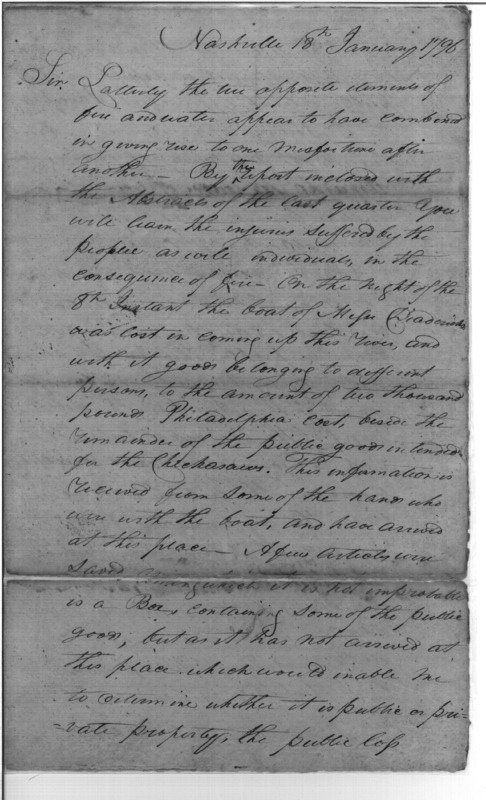 Nashville 18th January 1796
Sir. Latterly the two opposite elements of
fire and water appear to have combined
in giving rise to one misfortune after
another — By the report inclosed with
the Abstracts of the last quarter You
will learn the injuries suffered by the
people as well individuals, in the
consequence of fire — On the night of the
8th Instant the boat of Messr
was lost in coming up this River, and
with it goods belonging to different
persons, to the amount of two thousand
pounds Philadelphia Cost, beside the
remainder of the public goods intended
for the Chickasaws. This information is
received from some of the hands who
were with the boat, and have arrived
at this place — A few Articles were
saved it is not improbable
is a Box, containing some of the public
goods, but as it has not arrived at
this place which would inable me
to determine whether it is public or pri-
-vate property, the public loss